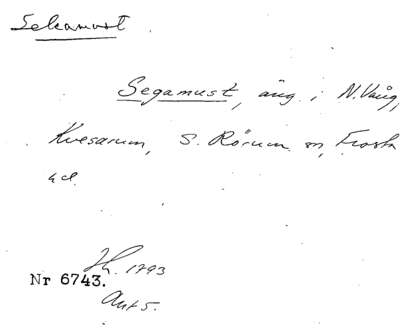 Sekamust
Segamust, äng i N. Vång,
Kvesarum, S. Rörum sn, Frosta
hd.
Nr 6743.
Jb. 1793
Ant 5.